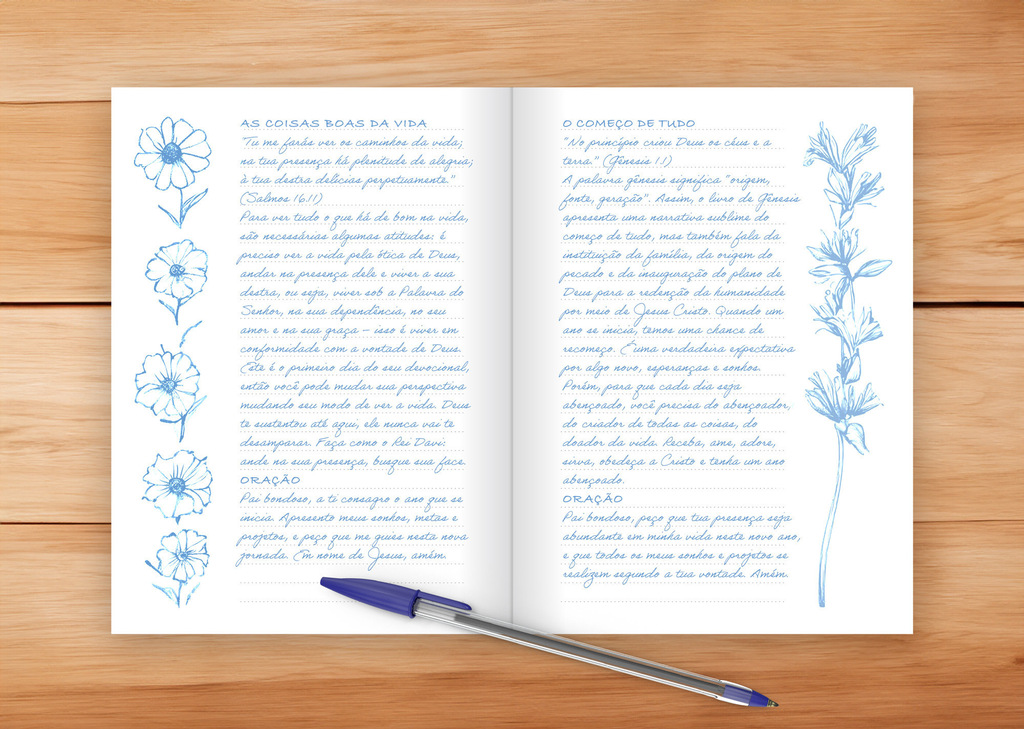 AS COISAS BOAS DA VIDA
"Tu me farás ver os caminhos da vida;
na tua presença há plenitude de alegria;
à tua destra delícias perpetuamente."
(Salmos 16.11)
Para ver tudo o que há de bom na vida,
são necessárias algumas atitudes: é
preciso ver a vida pela ótica de Deus,
andar na presença dele e viver à sua
destra, ou seja, viver sob a Palavra do
Senhor, na sua dependência, no seu
amor e na sua graça – isso é viver em
conformidade com a vontade de Deus.
Este é o primeiro dia do seu devocional,
então você pode mudar sua perspectiva
mudando seu modo de ver a vida. Deus
te sustentou até aqui, ele nunca vai te
desamparar. Faça como o Rei Davi:
ande na sua presença, busque sua face.
ORAÇÃO
Pai bondoso, a ti consagro o ano que se
inicia. Apresento meus sonhos, metas e
projetos, e peço que me guies nesta nova
jornada. Em nome de Jesus, amém.
O COMEÇO DE TUDO
"No princípio criou Deus os céus e a
terra." (Gênesis 1.1)
A palavra gênesis significa "origem,
fonte, geração". Assim, o livro de Gênesis
apresenta uma narrativa sublime do
começo de tudo, mas também fala da
instituição da família, da origem do
pecado e da inauguração do plano de
Deus para a redenção da humanidade
por meio de Jesus Cristo. Quando um
ano se inicia, temos uma chance de
recomeço. É uma verdadeira expectativa
por algo novo, esperanças e sonhos.
Porém, para que cada dia seja
abençoado, você precisa do abençoador,
do criador de todas as coisas, do
doador da vida. Receba, ame, adore,
sirva, obedeça a Cristo e tenha um ano
abençoado.
ORAÇÃO
Pai bondoso, peço que tua presença seja
abundante em minha vida neste novo ano,
e que todos os meus sonhos e projetos se
realizem segundo a tua vontade. Amém.